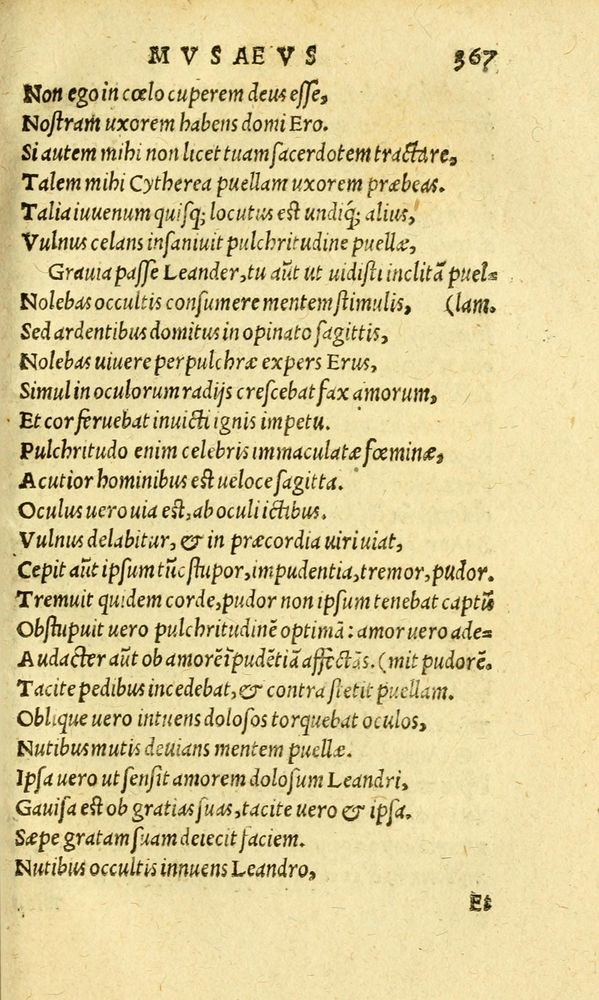 MVSAEVS 367
Non ego in cœlo cuperem deus eſſe,
Noſtram uxorem habens domi Ero.
Si autem mihi non licet tuam ſacerdotem tractare,
Talem mihi Cytherea puellam uxorem præbeas.
Talia iuuenum quiſq; locutus eſt undiq; alius,
Vulnus celans inſaniuit pulchritudine puellæ,
Grauia paſſe Leander, tu aũt ut uidiſti inclitã puel=
Nolebas occultis conſumere mentem ſtimulis, (lam.
Sed ardentibus domitus in opinato ſagittis,
Nolebas uiuere perpulchræ expers Erus,
Simul in oculorum radijs creſcebat fax amorum,
Et cor feruebat inuicti ignis impetu.
Pulchritudo enim celebris immaculatæ fœminæ,
Acutior hominibus eſt ueloce ſagitta.
Oculus uero uia eſt, ab oculi ictibus.
Vulnus delabitur, & in præcordia uiri uiat,
Cepit aũt ipſum tũc ſtupor, impudentia, tremor, pudor.
Tremuit quidem corde, pudor non ipſum tenebat captũ
Obſtupuit uero pulchritudinẽ optimã: amor uero ade=
Audacter aũt ob amorẽ ĩpudẽtiã affectãs. (mit pudorẽ.
Tacite pedibus incedebat, & contra ſtetit puellam.
Oblique uero intuens doloſos torquebat oculos,
Nutibus mutis deuians mentem puellæ.
Ipſa uero ut ſenſit amorem doloſum Leandri,
Gauiſa eſt ob gratias ſuas, tacite uero & ipſa.
Sæpe gratam ſuam deiecit faciem.
Nutibus occultis innuens Leandro,
Et